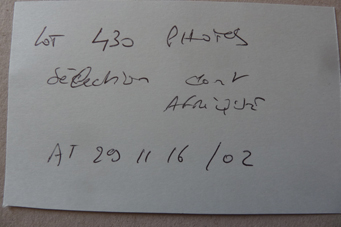 LOT 430 PHOTOS
Sélection dont
AFRIQUE
AT 29 11 16 / 02